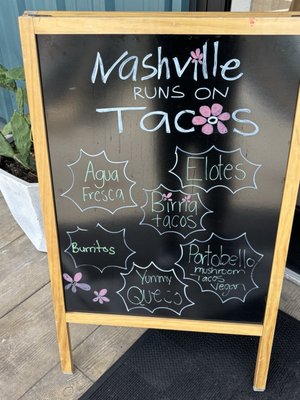 Nashville
RUNS ON
TACOS
Agua
Fresca
Elotes
Birria
tacos
Burritos
Portobello
mushroom
Tacos
vegan
Yummy
Queso